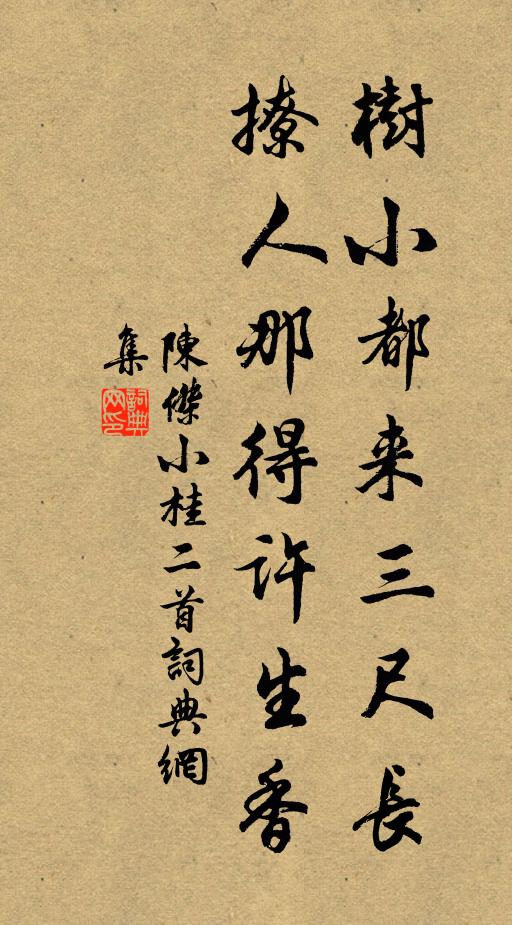 樹小都来三尺長
撩人那得許生香
陳傑小桂二首詞典網
集
詞典網印